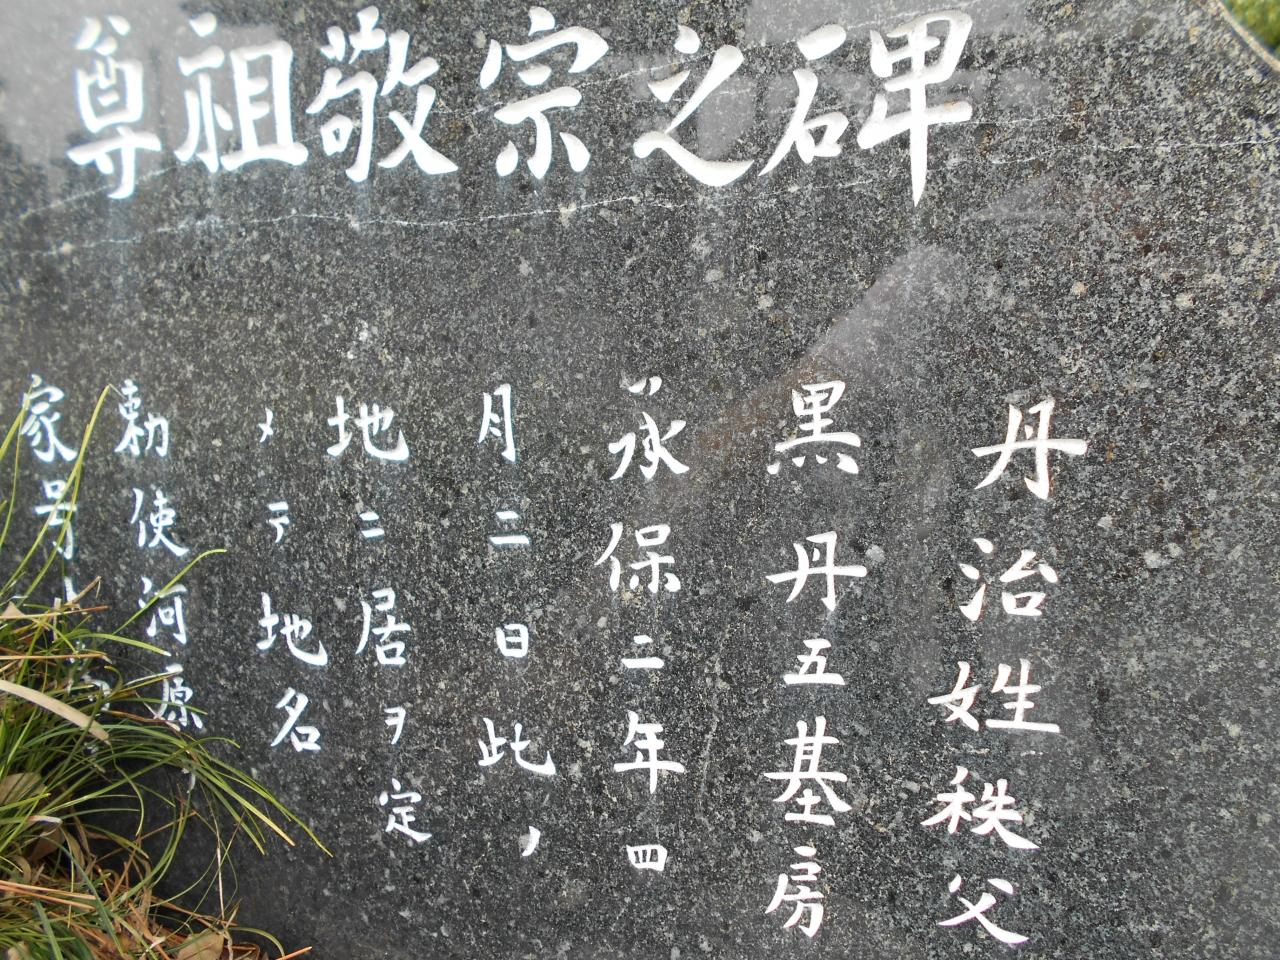 尊祖敬宗之碑
丹治姓秩父
黒丹五基房
承保二年四
月二日此ノ
地ニ居ヲ定
メテ地名
勅使河原
家号